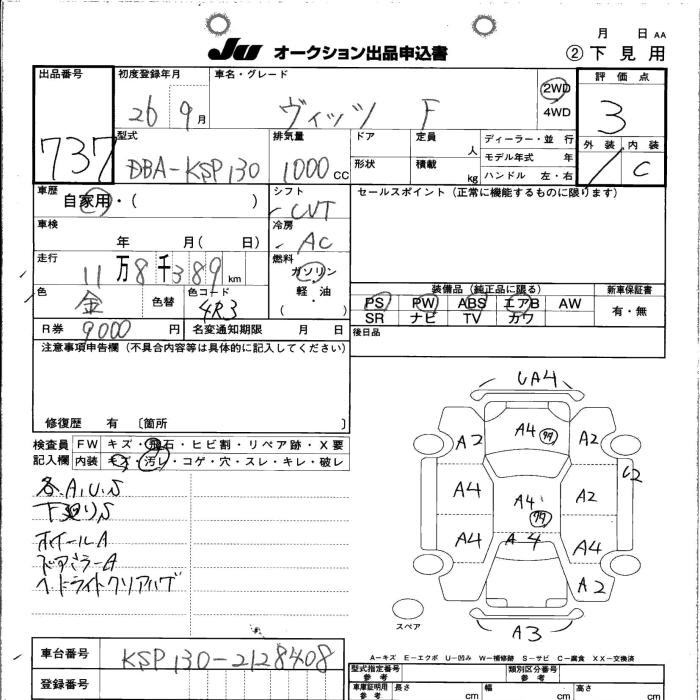 月 日 AA
JU オークション出品申込書 ②下見用
出品番号 初度登録年月 車名・グレード 2WD 評価点
737 26 9月 ヴィッツ F 4WD 3
型式 排気量 ドア 定員 人 ディーラー・並 行 外装 内装
DBA-KSP130 1000cc 形状 積載 kg モデル年式 年 / C
ハンドル 左・右
車歴 シフト セールスポイント(正常に機能するものに限ります)
自家用・( ) CVT
車検 冷房
年 月( 日) AC
走行 燃料
11万8千389km ガソリン
色 色コード 軽・油 装備品(純正品に限る) 新車保証書
金 色替 4R3 ・( ) PS PW ABS エアB AW 有・無
SR ナビ TV カワ
R券 9000円 名変通知期限 月 日 後日品
注意事項申告欄(不具合内容等は具体的に記入してください)
修復歴 有 〔箇所 〕
検査員 FW キズ・飛石・ヒビ割・リペア跡・X要
記入欄 内装 キズ・汚レ・コゲ・穴・スレ・キレ・破レ
各A,U,S
下廻りS
ホイールA
ドアミラーA
ヘッドライトクリアハゲ
UA4
A2 A4 A2
A4 A4 A2 U2
A4 A4 A4
A2
スペア A3
A-キズ E-エクボ U-凹み W-補修跡 S-サビ C-腐食 XX-交換済
車台番号 KSP130-2128408 型式指定番号 参考 類別区分番号 参考
登録番号 車庫証明用 参考 長さ cm 幅 cm 高さ cm